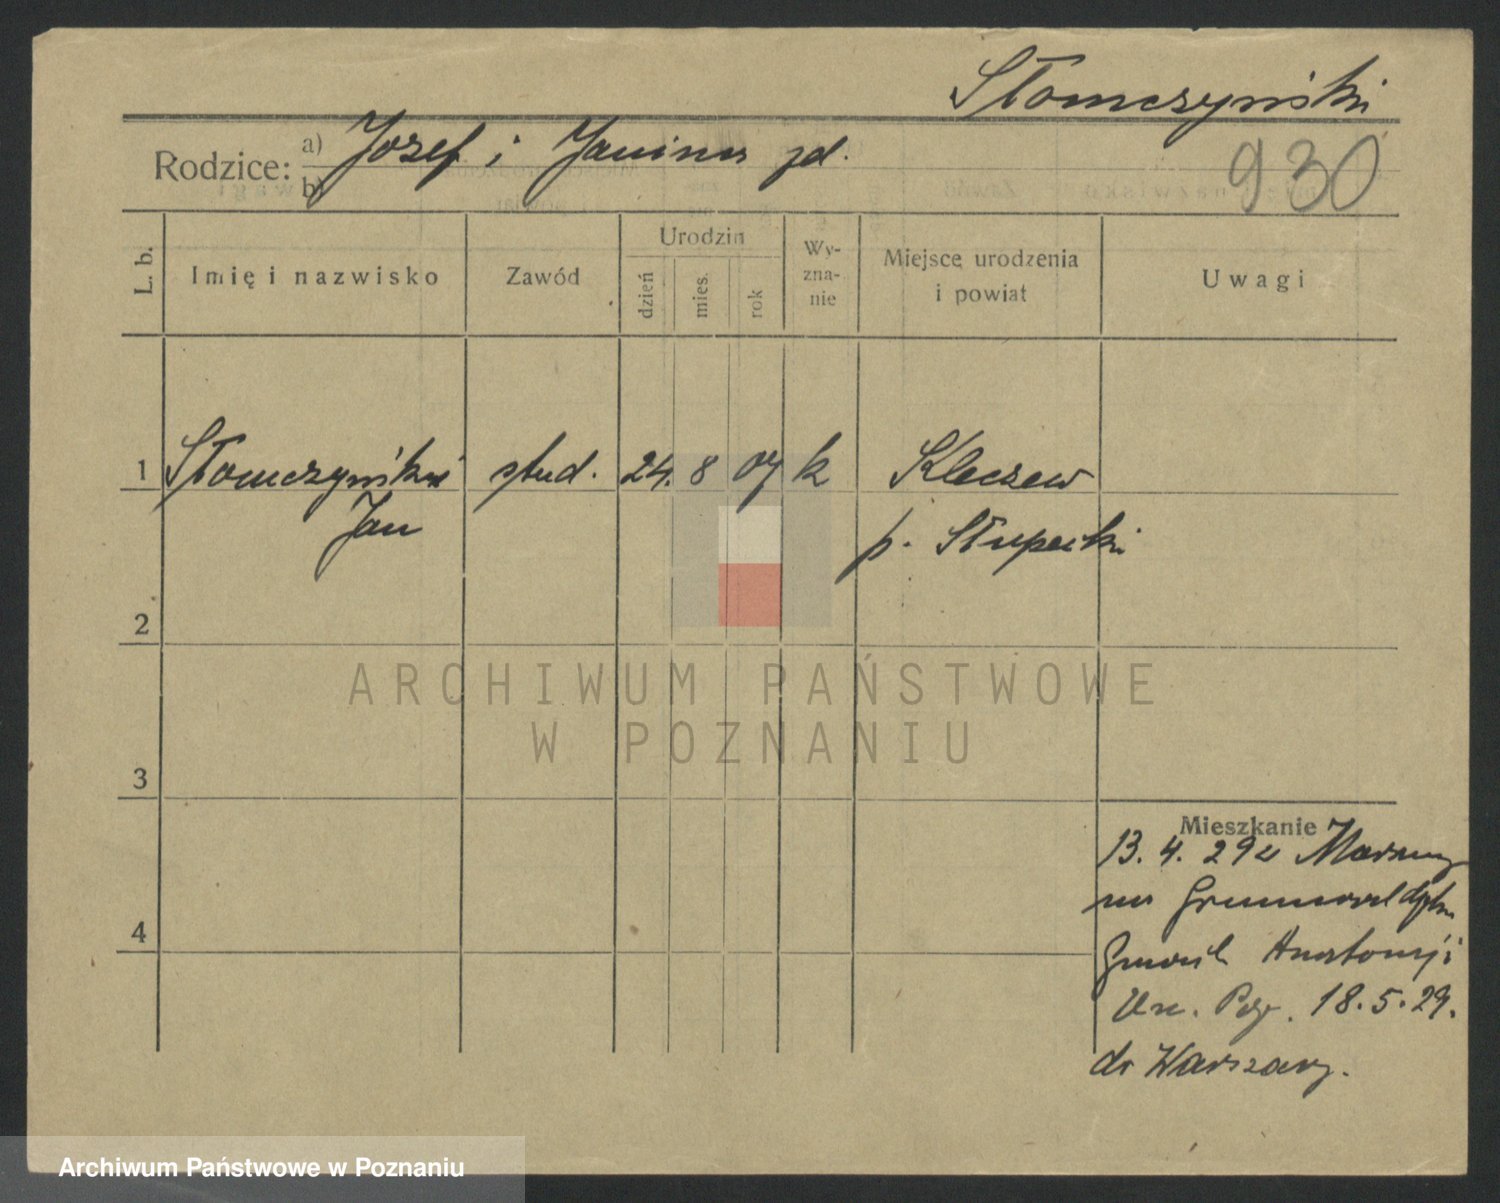 Słomczyński
Rodzice: a) Józef i Janina zd.
b)
930
L. b.
Imię i nazwisko
Zawód
Urodzin
dzień
mies.
rok
Wy-
zna-
nie
Miejsce urodzenia
i powiat
Uwagi
1 Słomczyński stud. 24. 8 07 k Kleczew
Jan p. Słupecki
2
3
4
Mieszkanie
13. 4. 29 z
na Grunwaldzką
Anatomji
18. 5. 29.
do Warszawy.
ARCHIWUM PAŃSTWOWE
W POZNANIU
Archiwum Państwowe w Poznaniu